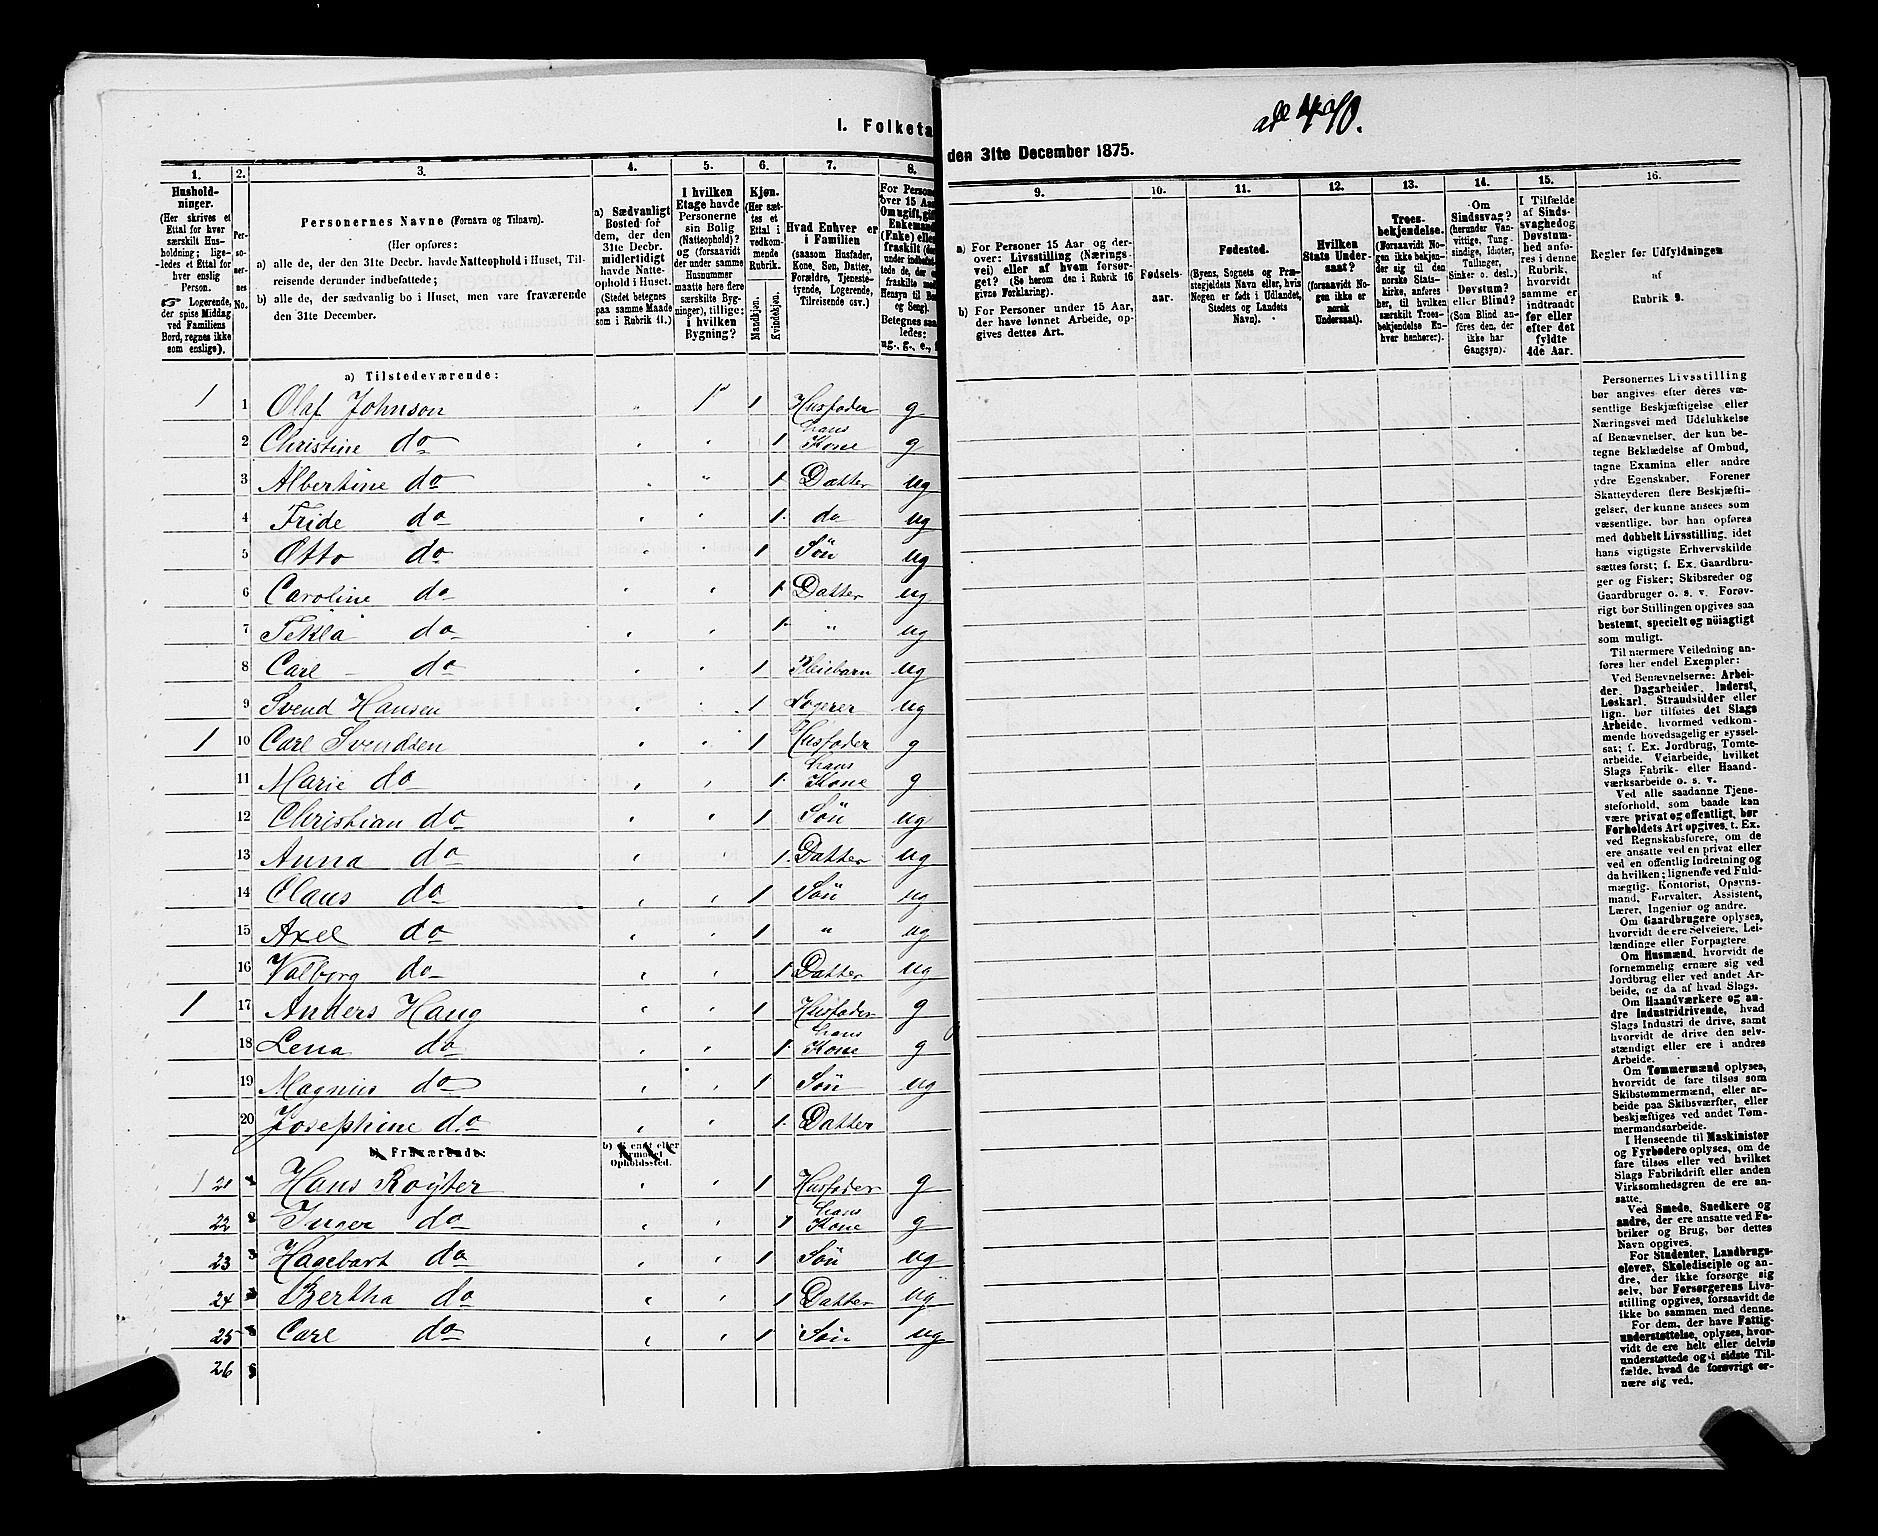 ad 470.
I. Folketa
den 31te December 1875.
1.
Hushold-
ninger.
(Her skrives et
Ettal for hver
særskilt Hus-
holdning; lige-
ledes et Ettal for
hver enslig
Person.
Logerende,
der spise Middag
ved Familiens
Bord, regnes ikke
som enslige).
2.
Per-
so-
ner-
nes
No.
3.
Personernes Navne (Fornavn og Tilnavn).
(Her opføres:
a) alle de, der den 31te Decbr. havde Natteophold i Huset, Til-
reisende derunder indbefattede;
b) alle de, der sædvanlig bo i Huset, men vare fraværende
den 31te December.
4.
a) Sædvanligt
Bosted for
dem, der den
31te Decbr.
midlertidigt
havde Natte-
ophold i Huset.
(Stedet betegnes
paa samme Maade
som i Rubrik 11.)
5.
I hvilken
Etage havde
Personerne
sin Bolig
(Natteophold)?
og (forsaavidt
der under samme
Husnummer
maatte høre flere
særskilte Byg-
ninger), tillige:
i hvilken
Bygning?
6.
Kjøn.
(Her sæt-
tes et
Ettal i
vedkom-
mende
Rubrik.
Mandkjøn.
Kvindekjøn.
7.
Hvad Enhver er
i Familien
(saasom Husfader,
Kone, Søn, Datter,
Forældre, Tjeneste-
tyende, Logerende,
Tilreisende osv.)
8.
For Person
over 15 Aar
Om ugift, gift
Enkemand
(Enke) eller
fraskilt
Betegnes saa-
ledes:
ug., g., e.,
9.
a) For Personer 15 Aar og der-
over: Livsstilling (Nærings-
vei) eller af hvem forsør-
get? (Se herom den i Rubrik 16
givne Forklaring).
b) For Personer under 15 Aar,
der have lønnet Arbeide, op-
gives dettes Art.
10.
Fødsels-
aar.
11.
Fødested.
(Byens, Sognets og Præ-
stegjeldets Navn eller, hvis
Nogen er født i Udlandet,
Stedets og Landets
Navn).
12.
Hvilken
Stats Under-
saat?
(forsaavidt No-
gen ikke er
norsk
Undersaat).
13.
Troes-
bekjendelse.
(Forsaavidt No-
gen ikke bekjen-
der sig til den
norske Stats-
kirke, anføres
her, til hvilken
særskilt Troes-
bekjendelse En-
hver henhører).
14.
Om
Sindssvag?
(herunder Van-
vittige, Tung-
sindige, Idioter,
Tullinger,
Sinker o. desl.)
Døvstum?
eller Blind?
(Som Blind an-
føres den, der
ikke har
Gangsyn).
15.
I Tilfælde
af Sinds-
svaghed og
Døvstum-
hed anfø-
res i denne
Rubrik,
hvorvidt
samme er
indtraadt
før eller
efter det
fyldte
4de Aar.
16.
Regler for Udfyldningen
af
Rubrik 9.
a) Tilstedeværende:
1 1 Olaf Johnson „ 1ste 1 Husfader g
2 Christine do „ „ 1 hans Kone g
3 Albertine do „ „ 1 Datter ug
4 Fride do „ „ 1 do ug
5 Otto do „ „ 1 Søn ug
6 Caroline do „ „ 1 Datter ug
7 Tekla do „ „ 1 „ ug
8 Carl – do „ „ 1 Pleiebarn ug
9 Svend Hansen „ „ 1 Logerer ug
1 10 Carl Svendsen „ „ 1 Husfader g
11 Marie do „ „ 1 hans Kone g
12 Christian do „ „ 1 Søn ug
13 Anna do „ „ 1 Datter ug
14 Claus do „ „ 1 Søn ug
15 Axel do „ „ 1 „ ug
16 Valborg do „ „ 1 Datter ug
1 17 Anders Haug „ „ 1 Husfader g
18 Lena do „ „ 1 hans Kone g
19 Magnus do „ „ 1 Søn ug
20 Josephine do „ „ 1 Datter
b) Fraværende:
b) Kjendt eller
formodet
Opholdssted.
1 21 Hans Røyter „ „ 1 Husfader g
22 Inger do „ „ 1 hans Kone g
23 Hagebart do „ „ 1 Søn ug
24 Bertha do „ „ 1 Datter ug
25 Carl do „ „ 1 Søn ug
26
Personernes Livsstilling
bør angives efter deres væ-
sentlige Beskjæftigelse eller
Næringsvei med Udelukkelse
af Benævnelser, der kun be-
tegne Beklædelse af Ombud,
tagne Examina eller andre
ydre Egenskaber. Forener
Skatteyderen flere Beskjæfti-
gelser, der kunne ansees som
væsentlige, bør han opføres
med dobbelt Livsstilling, idet
hans vigtigste Erhvervskilde
sættes først; f. Ex. Gaardbru-
ger og Fisker; Skibsreder og
Gaardbruger o. s. v. Forøv-
rigt bør Stillingen opgives saa
bestemt, specielt og nøiagtigt
som muligt.
Til nærmere Veiledning an-
føres her endel Exempler:
Ved Benævnelserne: Arbei-
der, Dagarbeider, Inderst,
Løskarl, Strandsidder eller
lign. bør tilføies det Slags
Arbeide, hvormed vedkom-
mende hovedsagelig er syssel-
sat; f. Ex. Jordbrug, Tomte-
arbeide, Veiarbeide, hvilket
Slags Fabrik- eller Haand-
værksarbeide o. s. v.
Ved alle saadanne Tjene-
steforhold, som baade kan
være privat og offentligt, bør
Forholdets Art opgives, t. Ex.
ved Regnskabsførere, om de
ere ansatte ved en privat eller
ved en offentlig Indretning og
da hvilken; lignende ved Fuld-
mægtig, Kontorist, Opsyns-
mand, Forvalter, Assistent,
Lærer, Ingeniør og andre.
Om Gaardbrugere oplyses,
hvorvidt de ere Selveiere, Lei-
lændinge eller Forpagtere.
Om Husmænd, hvorvidt de
fornemmelig ernære sig ved
Jordbrug eller ved andet Ar-
beide, og da af hvad Slags.
Om Haandværkere og an-
dre Industridrivende, hvad
Slags Industri de drive, samt
hvorvidt de drive den selv-
stændigt eller ere i andres
Arbeide.
Om Tømmermænd oplyses,
hvorvidt de fare tilsøs som
Skibstømmermænd, eller ar-
beide paa Skibsværfter, eller
beskjæftiges ved andet Tøm-
mermandsarbeide.
I Henseende til Maskinister
og Fyrbødere oplyses, om de
fare tilsøs eller ved hvilket
Slags Fabrikdrift eller anden
Virksomhedsgren de ere an-
satte.
Ved Smede, Snedkere og
andre, der ere ansatte ved Fa-
briker og Brug, bør dettes
Navn opgives.
For Studenter, Landbrugs-
elever, Skoledisciple og an-
dre, der ikke forsørge sig
selv, bør Forsørgerens Livs-
stilling opgives, forsaavidt de
ikke bo sammen med denne.
For dem, der have Fattig-
understøttelse, oplyses, hvor-
vidt de ere helt eller delvis
understøttede og i sidste Til-
fælde, hvad de forøvrigt er-
nære sig ved.